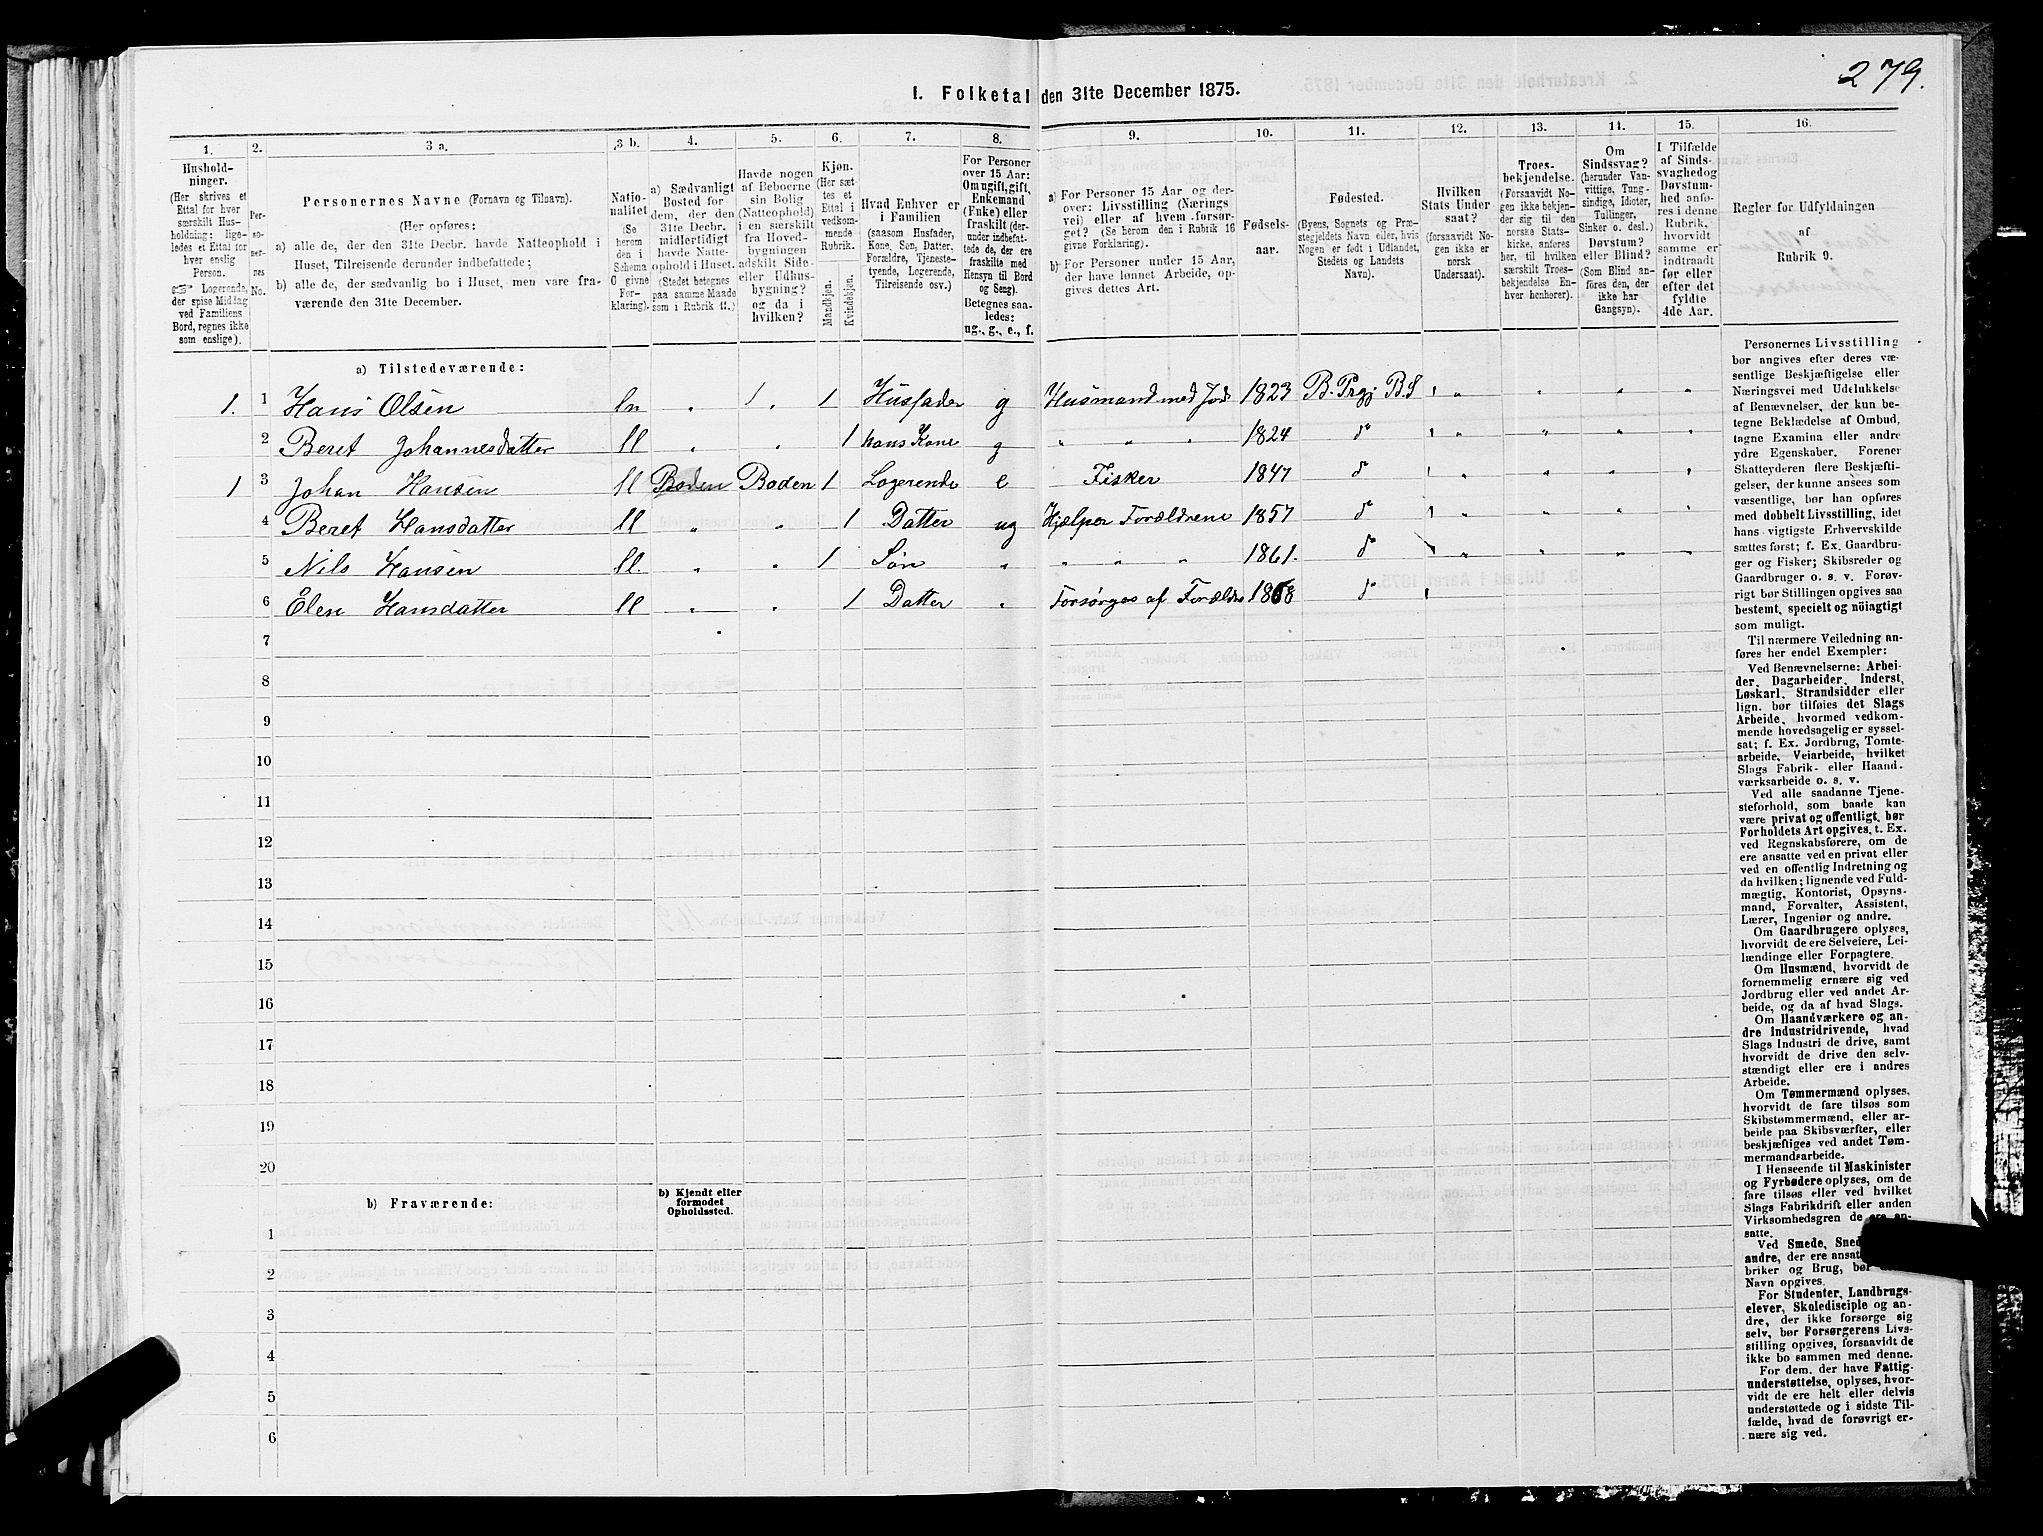 279.
I. Folketal den 31te December 1875.
1. 2. 3 a. 3 b. 4. 5. 6. 7. 8. 9. 10. 11. 12. 13. 14. 15. 16.
Hushold-
ninger.
(Her skrives et
Ettal for hver
særskilt Hus-
holdning; lige-
ledes et Ettal for
hver enslig
Person.
☞ Logerende,
der spise Middag
ved Familiens
Bord, regnes ikke
som enslige).
Per-
so-
ner-
nes
No.
Personernes Navne (Fornavn og Tilnavn).
(Her opføres:
a) alle de, der den 31te Decbr. havde Natteophold i
Huset, Tilreisende derunder indbefattede;
b) alle de, der sædvanlig bo i Huset, men vare fra-
værende den 31te December.
Natio-
nalitet
(Se
herom
den i
Schema
O givne
For-
klaring).
a) Sædvanligt
Bosted for
dem, der den
31te Decbr.
midlertidigt
havde Natte-
ophold i Huset.
(Stedet betegnes
paa samme Maade
som i Rubrik 11.)
Havde nogen
af Beboerne
sin Bolig
(Natteophold)
i en særskilt
fra Hoved-
bygningen
adskilt Side-
eller Udhus-
bygning?
og da i
hvilken?
Kjøn.
(Her sæt-
tes et
Ettal i
vedkom-
mende
Rubrik.
Mandkjøn.
Kvindekjøn.
Hvad Enhver er
i Familien
(saasom Husfader,
Kone, Søn, Datter.
Forældre, Tjeneste-
tyende, Logerende,
Tilreisende osv.)
For Personer
over 15 Aar:
Om ugift, gift,
Enkemand
(Enke) eller
fraskilt (der-
under indbefat-
tede de, der ere
fraskilte med
Hensyn til Bord
og Seng).
Betegnes saa-
ledes:
ug., g., e., f.
a) For Personer 15 Aar og der-
over: Livsstilling (Nærings
vei) eller af hvem forsør-
get? (Se herom den i Rubrik 16
givne Forklaring).
b) For Personer under 15 Aar,
der have lønnet Arbeide, op-
gives dettes Art.
Fødsels-
aar.
Fødested.
(Byens, Sognets og Præ-
stegjeldets Navn eller, hvis
Nogen er født i Udlandet,
Stedets og Landets
Navn).
Hvilken
Stats Under
saat?
(forsaavidt No-
gen ikke er
norsk
Undersaat).
Troes-
bekjendelse.
(Forsaavidt No-
gen ikke bekjen-
der sig til den
norske Stats-
kirke, anføres
her, til hvilken
særskilt Troes-
bekjendelse En-
hver henhører).
Om
Sindssvag?
(herunder Van-
vittige, Tung-
sindige, Idioter,
Tullinger,
Sinker o. desl.)
Døvstum?
eller Blind?
(Som Blind an-
føres den, der
ikke har
Gangsyn).
I Tilfælde
af Sinds-
svaghed og
Døvstum-
hed anfø-
res i denne
Rubrik,
hvorvidt
samme er
indtraadt
før eller
efter det
fyldte
4de Aar.
Regler for Udfyldningen
af
Rubrik 9.
a) Tilstedeværende:
1. 1 Hans Olsen ln „ „ 1 Husfader g Husmand med Jord 1823 B. Prgj B.S „ „ „ „
2 Beret Johannesdatter ll „ „ 1 hans Kone g „ „ „ 1824 do „ „ „ „
1 3 Johan Hansen ll Boden Boden 1 Logerende e Fisker 1847 do „ „ „ „
4 Beret Hansdatter ll „ „ 1 Datter ug Hjælper Forældrene 1857 do „ „ „ „
5 Nils Hansen ll. „ „ 1 Søn „ „ „ „ 1861. do „ „ „ „
6 Elen Hansdatter ll „ „ 1 Datter „ Forsørges af Forældre 1868 do
7
8
9
10
11
12
13
14
15
16
17
18
19
20
b) Fraværende:
b) Kjendt eller
formodet
Opholdssted.
1
2
3
4
5
6
Personernes Livsstilling
bør angives efter deres væ-
sentlige Beskjæftigelse eller
Næringsvei med Udelukkelse
af Benævnelser, der kun be-
tegne Beklædelse af Ombud,
tagne Examina eller andre
ydre Egenskaber. Forener
Skatteyderen flere Beskjæfti-
gelser, der kunne ansees som
væsentlige, bør han opføres
med dobbelt Livsstilling, idet
hans vigtigste Erhvervskilde
sættes først; f. Ex. Gaardbru-
ger og Fisker; Skibsreder og
Gaardbruger o. s. v. Forøv-
rigt bør Stillingen opgives saa
bestemt, specielt og nöiagtigt
som muligt.
Til nærmere Veiledning an-
føres her endel Exempler:
Ved Benævnelserne: Arbei-
der, Dagarbeider, Inderst,
Løskarl, Strandsidder eller
lign. bør tilføies det Slags
Arbeide, hvormed vedkom-
mende hovedsagelig er syssel-
sat; f. Ex. Jordbrug, Tomte-
arbeide, Veiarbeide, hvilket
Slags Fabrik- eller Haand-
værksarbeide o. s. v.
Ved alle saadanne Tjene-
steforhold, som baade kan
være privat og offentligt, bør
Forholdets Art opgives, t. Ex.
ved Regnskabsførere, om de
ere ansatte ved en privat eller
ved en offentlig Indretning og
da hvilken; lignende ved Fuld-
mægtig, Kontorist, Opsyns-
mand, Forvalter, Assistent,
Lærer, Ingeniør og andre.
Om Gaardbrugere oplyses,
hvorvidt de ere Selveiere, Lei-
lændinge eller Forpagtere.
Om Husmænd, hvorvidt de
fornemmelig ernære sig ved
Jordbrug eller ved andet Ar-
beide, og da af hvad Slags.
Om Haandværkere og an-
dre Industridrivende, hvad
Slags Industri de drive, samt
hvorvidt de drive den selv-
stændigt eller ere i andres
Arbeide.
Om Tømmermænd oplyses,
hvorvidt de fare tilsøs som
Skibstømmermænd, eller ar-
beide paa Skibsværfter, eller
beskjæftiges ved andet Tøm-
mermandsarbeide.
I Henseende til Maskinister
og Fyrbødere oplyses, om de
fare tilsøs eller ved hvilket
Slags Fabrikdrift eller anden
Virksomhedsgren de ere an-
satte.
Ved Smede,
andre, der ere
briker og Brug, bør
Navn opgives.
For Studenter, Landbrugs-
elever, Skoledisciple og an-
dre, der ikke forsørge sig
selv, bør Forsørgerens Livs-
stilling opgives, forsaavidt de
ikke bo sammen med denne.
For dem, der have Fattig-
understøttelse, oplyses, hvor-
vidt de ere helt eller delvis
understøttede og i sidste Til-
fælde, hvad de forøvrigt er-
nære sig ved.